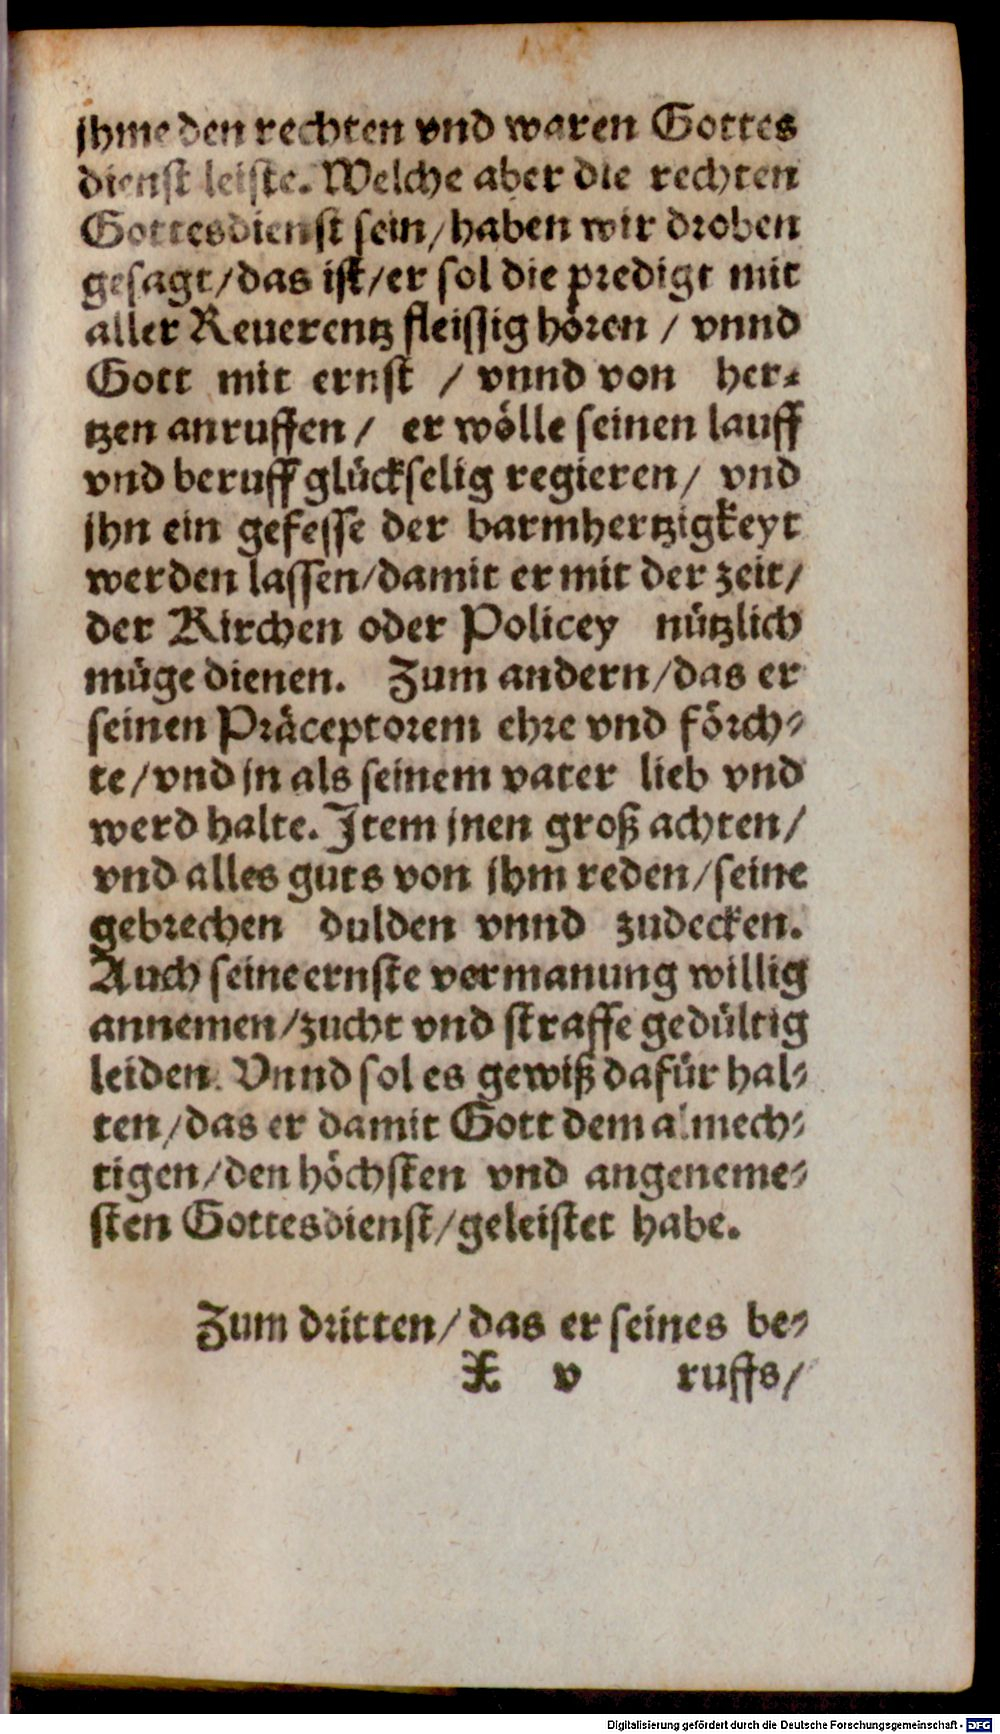 jhme den rechten vnd waren Gottes
dienst leiste. Welche aber die rechten
Gottesdienst sein/haben wir droben
gesagt/das ist/er sol die predigt mit
aller Reuerentz fleissig hören / vnnd
Gott mit ernst / vnnd von her-
tzen anruffen/ er wölle seinen lauff
vnd beruff glückselig regieren/ vnd
jhn ein gefesse der barmhertzigkeyt
werden lassen/damit er mit der zeit/
der Kirchen oder Policey nützlich
müge dienen. Zum andern/das er
seinen Präceptorem ehre vnd förch-
te/vnd jn als seinem vater lieb vnd
werd halte. Item jnen groß achten/
vnd alles guts von jhm reden/seine
gebrechen dulden vnnd zudecken.
Auch seine ernste vermanung willig
annemen/zucht vnd straffe gedültig
leiden. Vnnd sol es gewiß dafür hal-
ten/das er damit Gott dem almech-
tigen/den höchsten vnd angeneme-
sten Gottesdienst/geleistet habe.
Zum dritten/das er seines be-
X v ruffs/
Digitalisierung gefördert durch die Deutsche Forschungsgemeinschaft - DFG